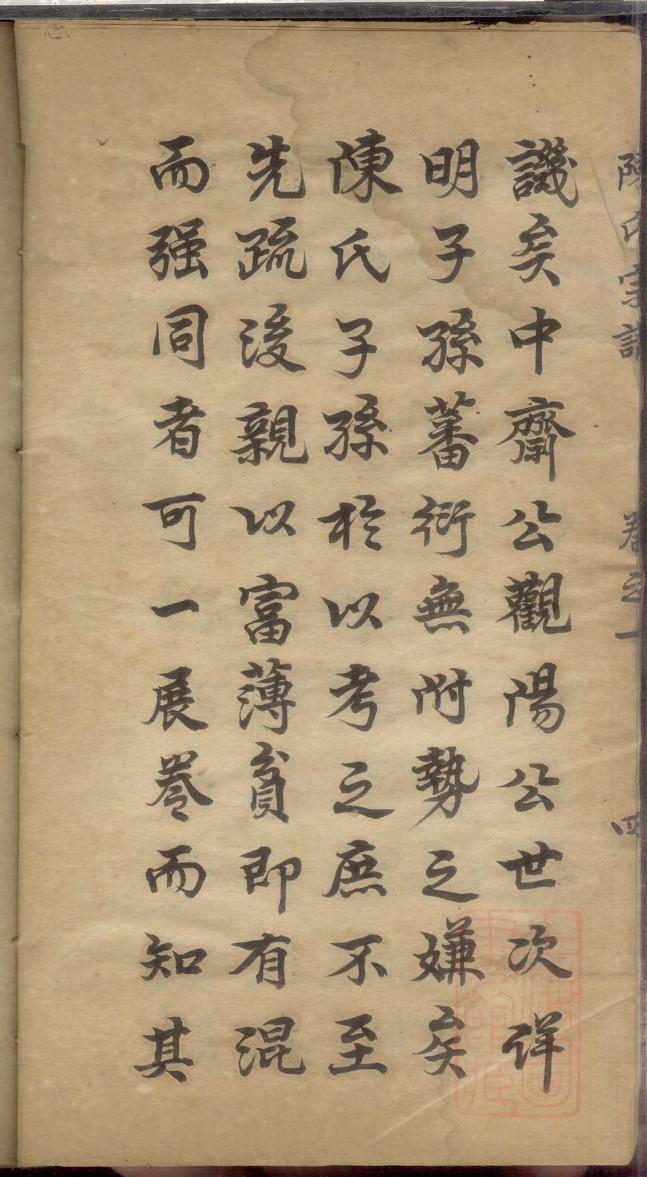 陳氏宗譜 卷之一 四
譏矣中齋公觀陽公世次詳
明子孫蕃衍無附勢之嫌矣
陳氏子孫於以考之庶不至
先疏後親以富薄貧即有混
而强同者可一展卷而知其